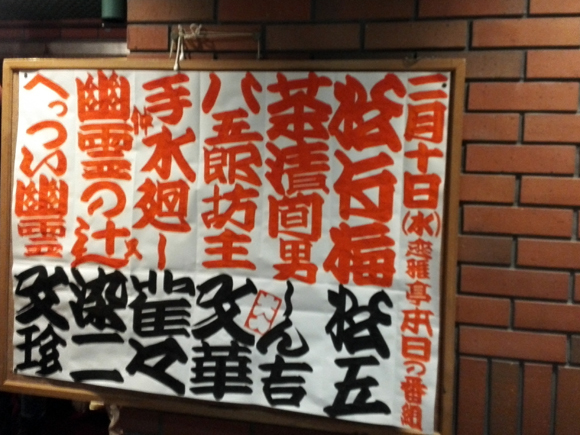 二月十日(水)恋雅亭本日の番組
松竹梅 松五
茶漬間男 しん吉
八五郎坊主 文華
手水廻し 雀々
仲入
幽霊の辻 染二
へっつい幽霊 文珍